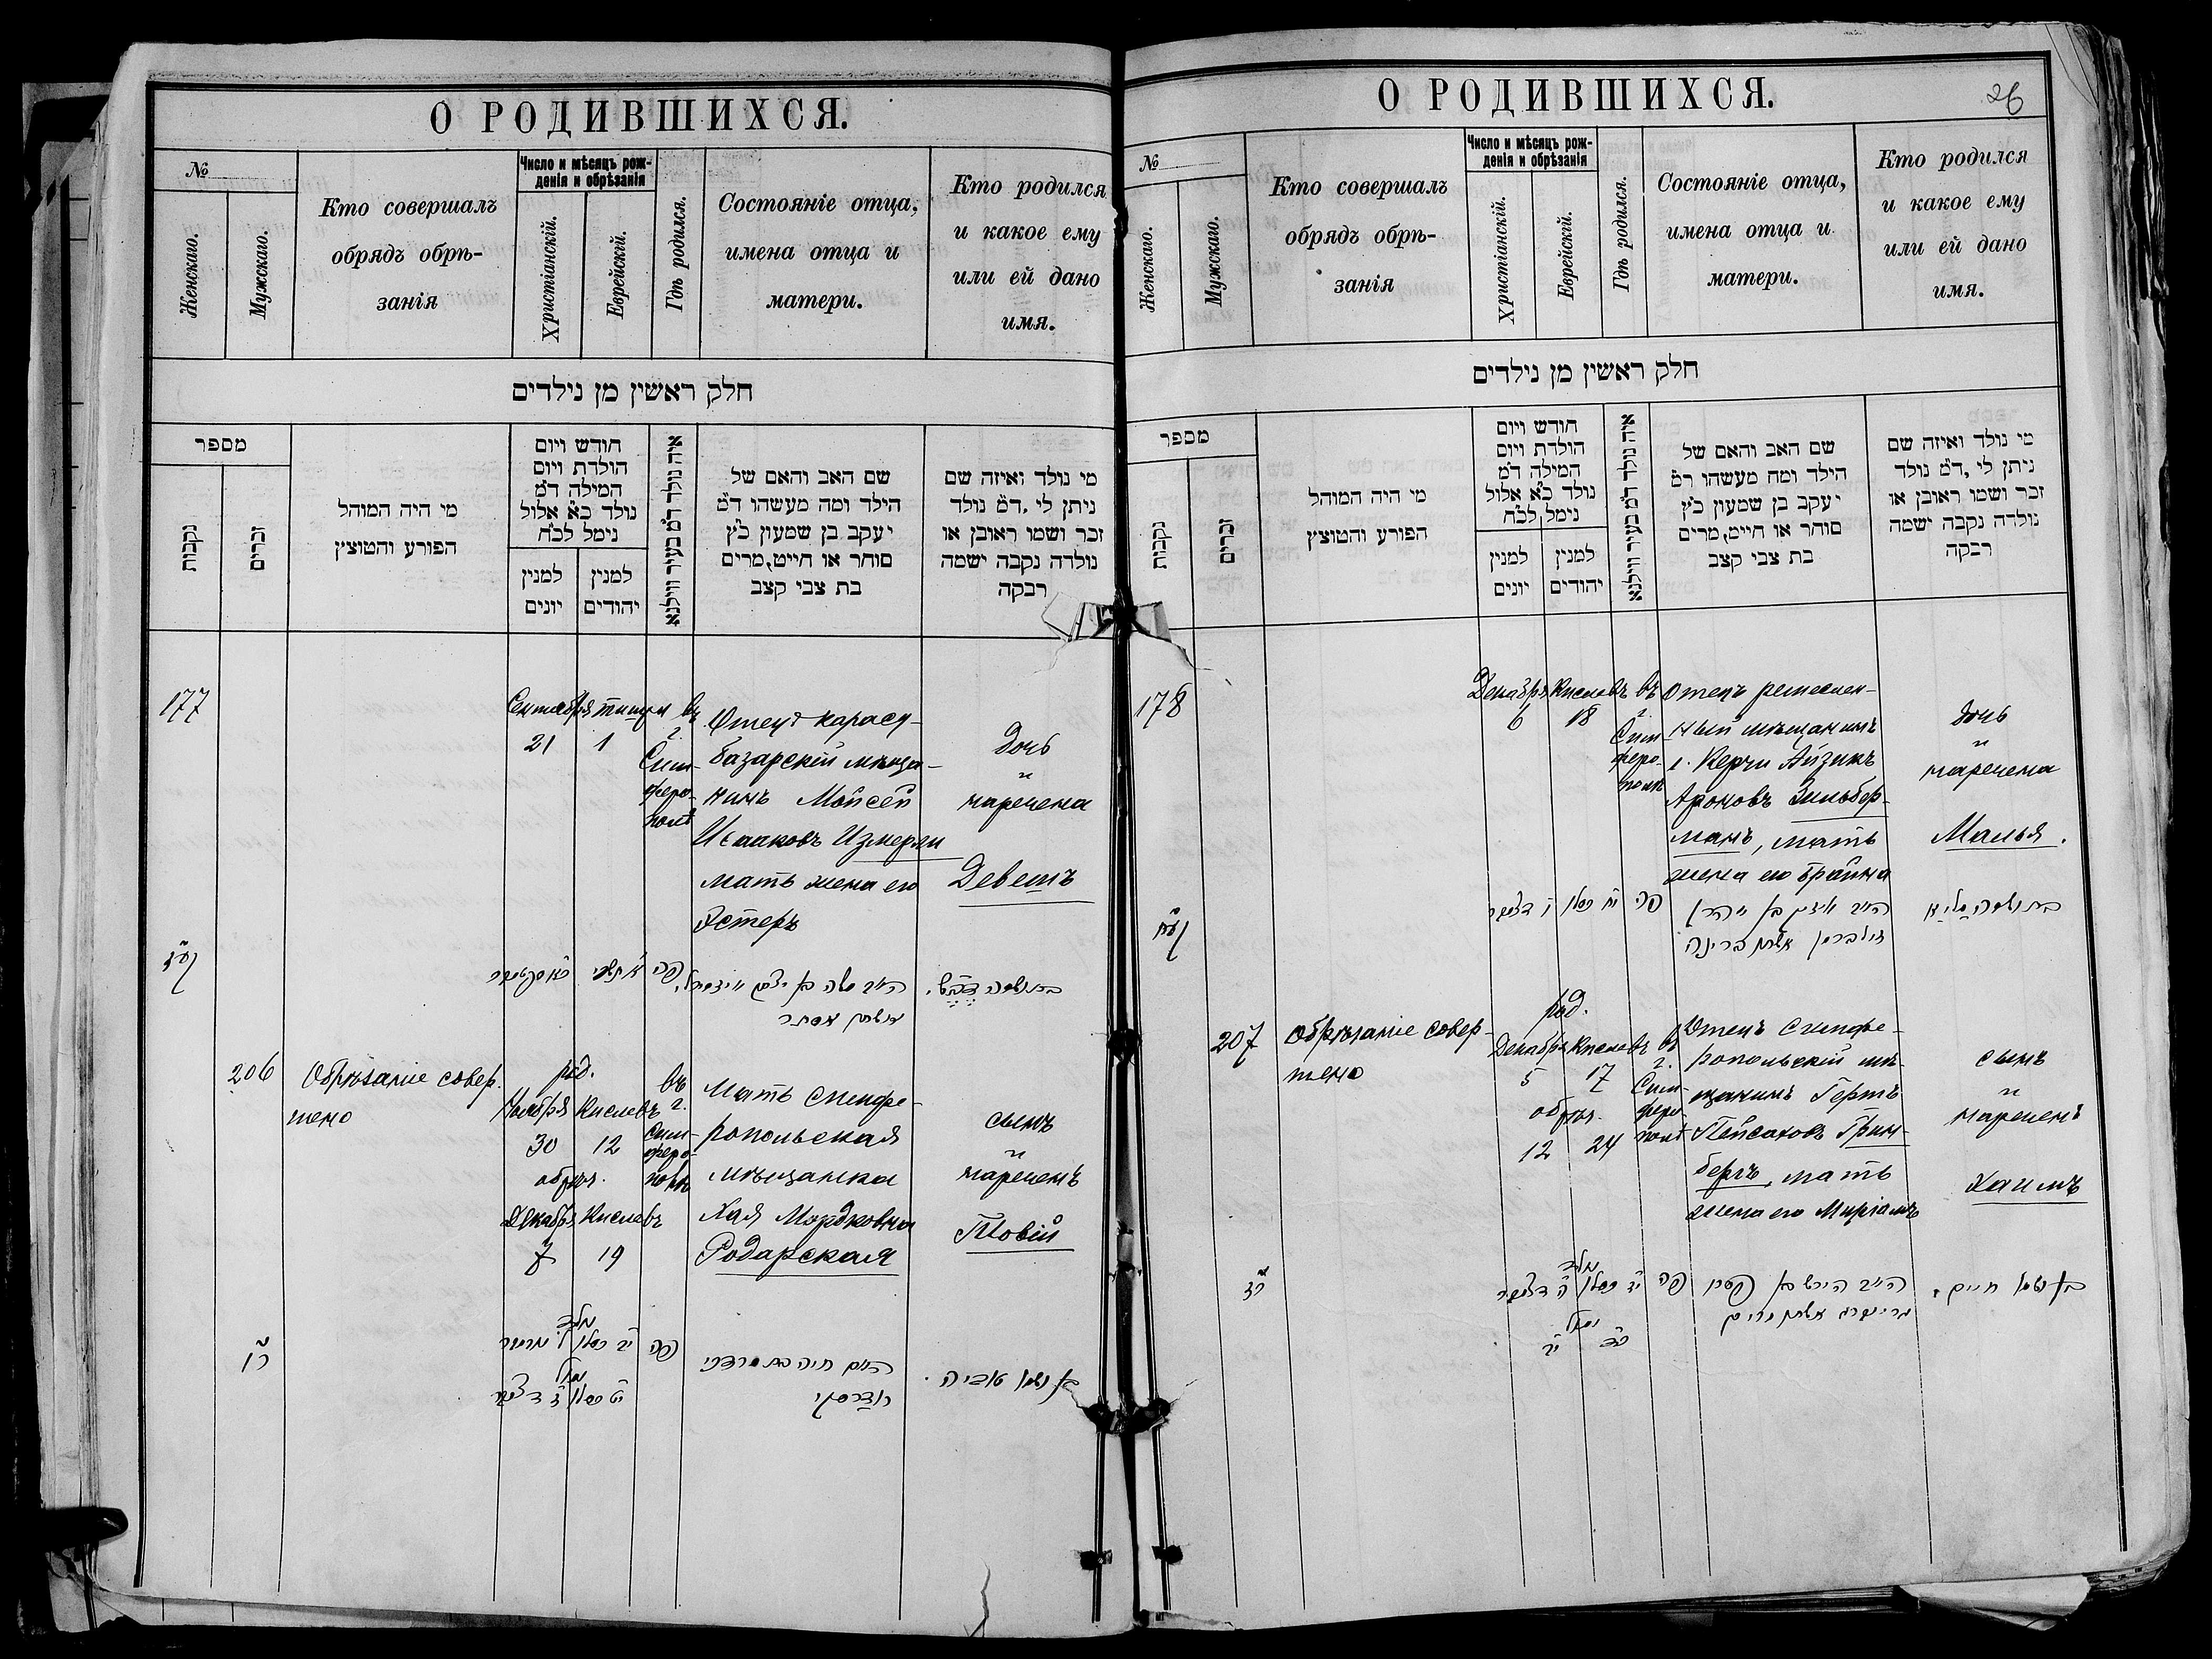 О РОДИВШИХСЯ.
№
Женскаго.
Мужскаго.
Кто совершалъ
обрядъ обрѣ-
занія
Число и мѣсяцъ рож-
денія и обрѣзанія
Христіанскій.
Еврейскій.
Гдѣ родился.
Состояніе отца,
имена отца и
матери.
Кто родился
и какое ему
или ей дано
имя.
חלק ראשין מן נילדים
מספר
נקבות
זכרים
מי היה המוהל
הפורע והטוצץ
חודש ויום
הולדת ויום
המילה ד״מ
נולד כ״א אלול
נימל לכ״ח
למנין
יונים
למנין
יהודים
איה נולד ד״מ בעיר ווילנא
שם האב והאם של
הילד ומה מעשהו ד״מ
יעקב בן שמעון כ״ץ
סוחר או חייט, מרים
בת צבי קצב
מי נולד ואיזה שם
ניתן לי, ד״מ נולד
זכר ושמו ראובן או
נולדה נקבה ישמה
רבקה
177
Сентября тишри
21 1
въ
г.
Сим-
феро-
полѣ
Отецъ карасу-
базарскій мѣща-
нинъ Мойсей
Исааковъ Измерли
мать жена его
Эстеръ
Дочь
и
наречена
Девешъ
פה
אסתר
206
Обрѣзаніе совер-
шено
род.
Ноября Кислевъ
30 12
обрѣз.
Декабря Кислевъ
7 19
въ
г.
Сим-
феро-
полѣ
Мать симфе-
ропольская
мѣщанка
Хая Мордковна
Родарская
сынъ
и
нареченъ
Товій
פה
בן ושמו טוביה.
О РОДИВШИХСЯ.
26
№
Женскаго.
Мужскаго.
Кто совершалъ
обрядъ обрѣ-
занія
Число и мѣсяцъ рож-
денія и обрѣзанія
Христіанскій.
Еврейскій.
Гдѣ родился.
Состояніе отца,
имена отца и
матери.
Кто родился
и какое ему
или ей дано
имя.
חלק ראשין מן נילדים
מספר
נקבות
זכרים
מי היה המוהל
הפורע והטוצץ
חודש ויום
הולדת ויום
המילה ד״מ
נולד כ״א אלול
נימל לכ״ח
למנין
יונים
למנין
יהודים
איה נולד ד״מ בעיר ווילנא
שם האב והאם של
הילד ומה מעשהו ד״מ
יעקב בן שמעון כ״ץ
סוחר או חייט, מרים
בת צבי קצב
מי נולד ואיזה שם
ניתן לי, ד״מ נולד
זכר ושמו ראובן או
נולדה נקבה ישמה
רבקה
178
Декабря Кислевъ
6 18
въ
г.
Сим-
феро-
полѣ
Отецъ ремеслен-
ный мѣщанинъ
г. Керчи Айзикъ
Ароновъ Зильбер-
манъ, мать
жена его Брайна
дочь
и
наречена
Малья.
פה
207
Обрѣзаніе совер-
шено
род.
Декабря Кислевъ
5 17
обрѣз.
12 24
въ
г.
Сим-
феро-
полѣ
Отецъ Симфе-
ропольскій мѣ-
щанинъ Гершъ
Пейсаховъ Грин-
бергъ, мать
жена его Миріамъ
сынъ
и
нареченъ
Хаимъ
פה
בן ושמו חיים.